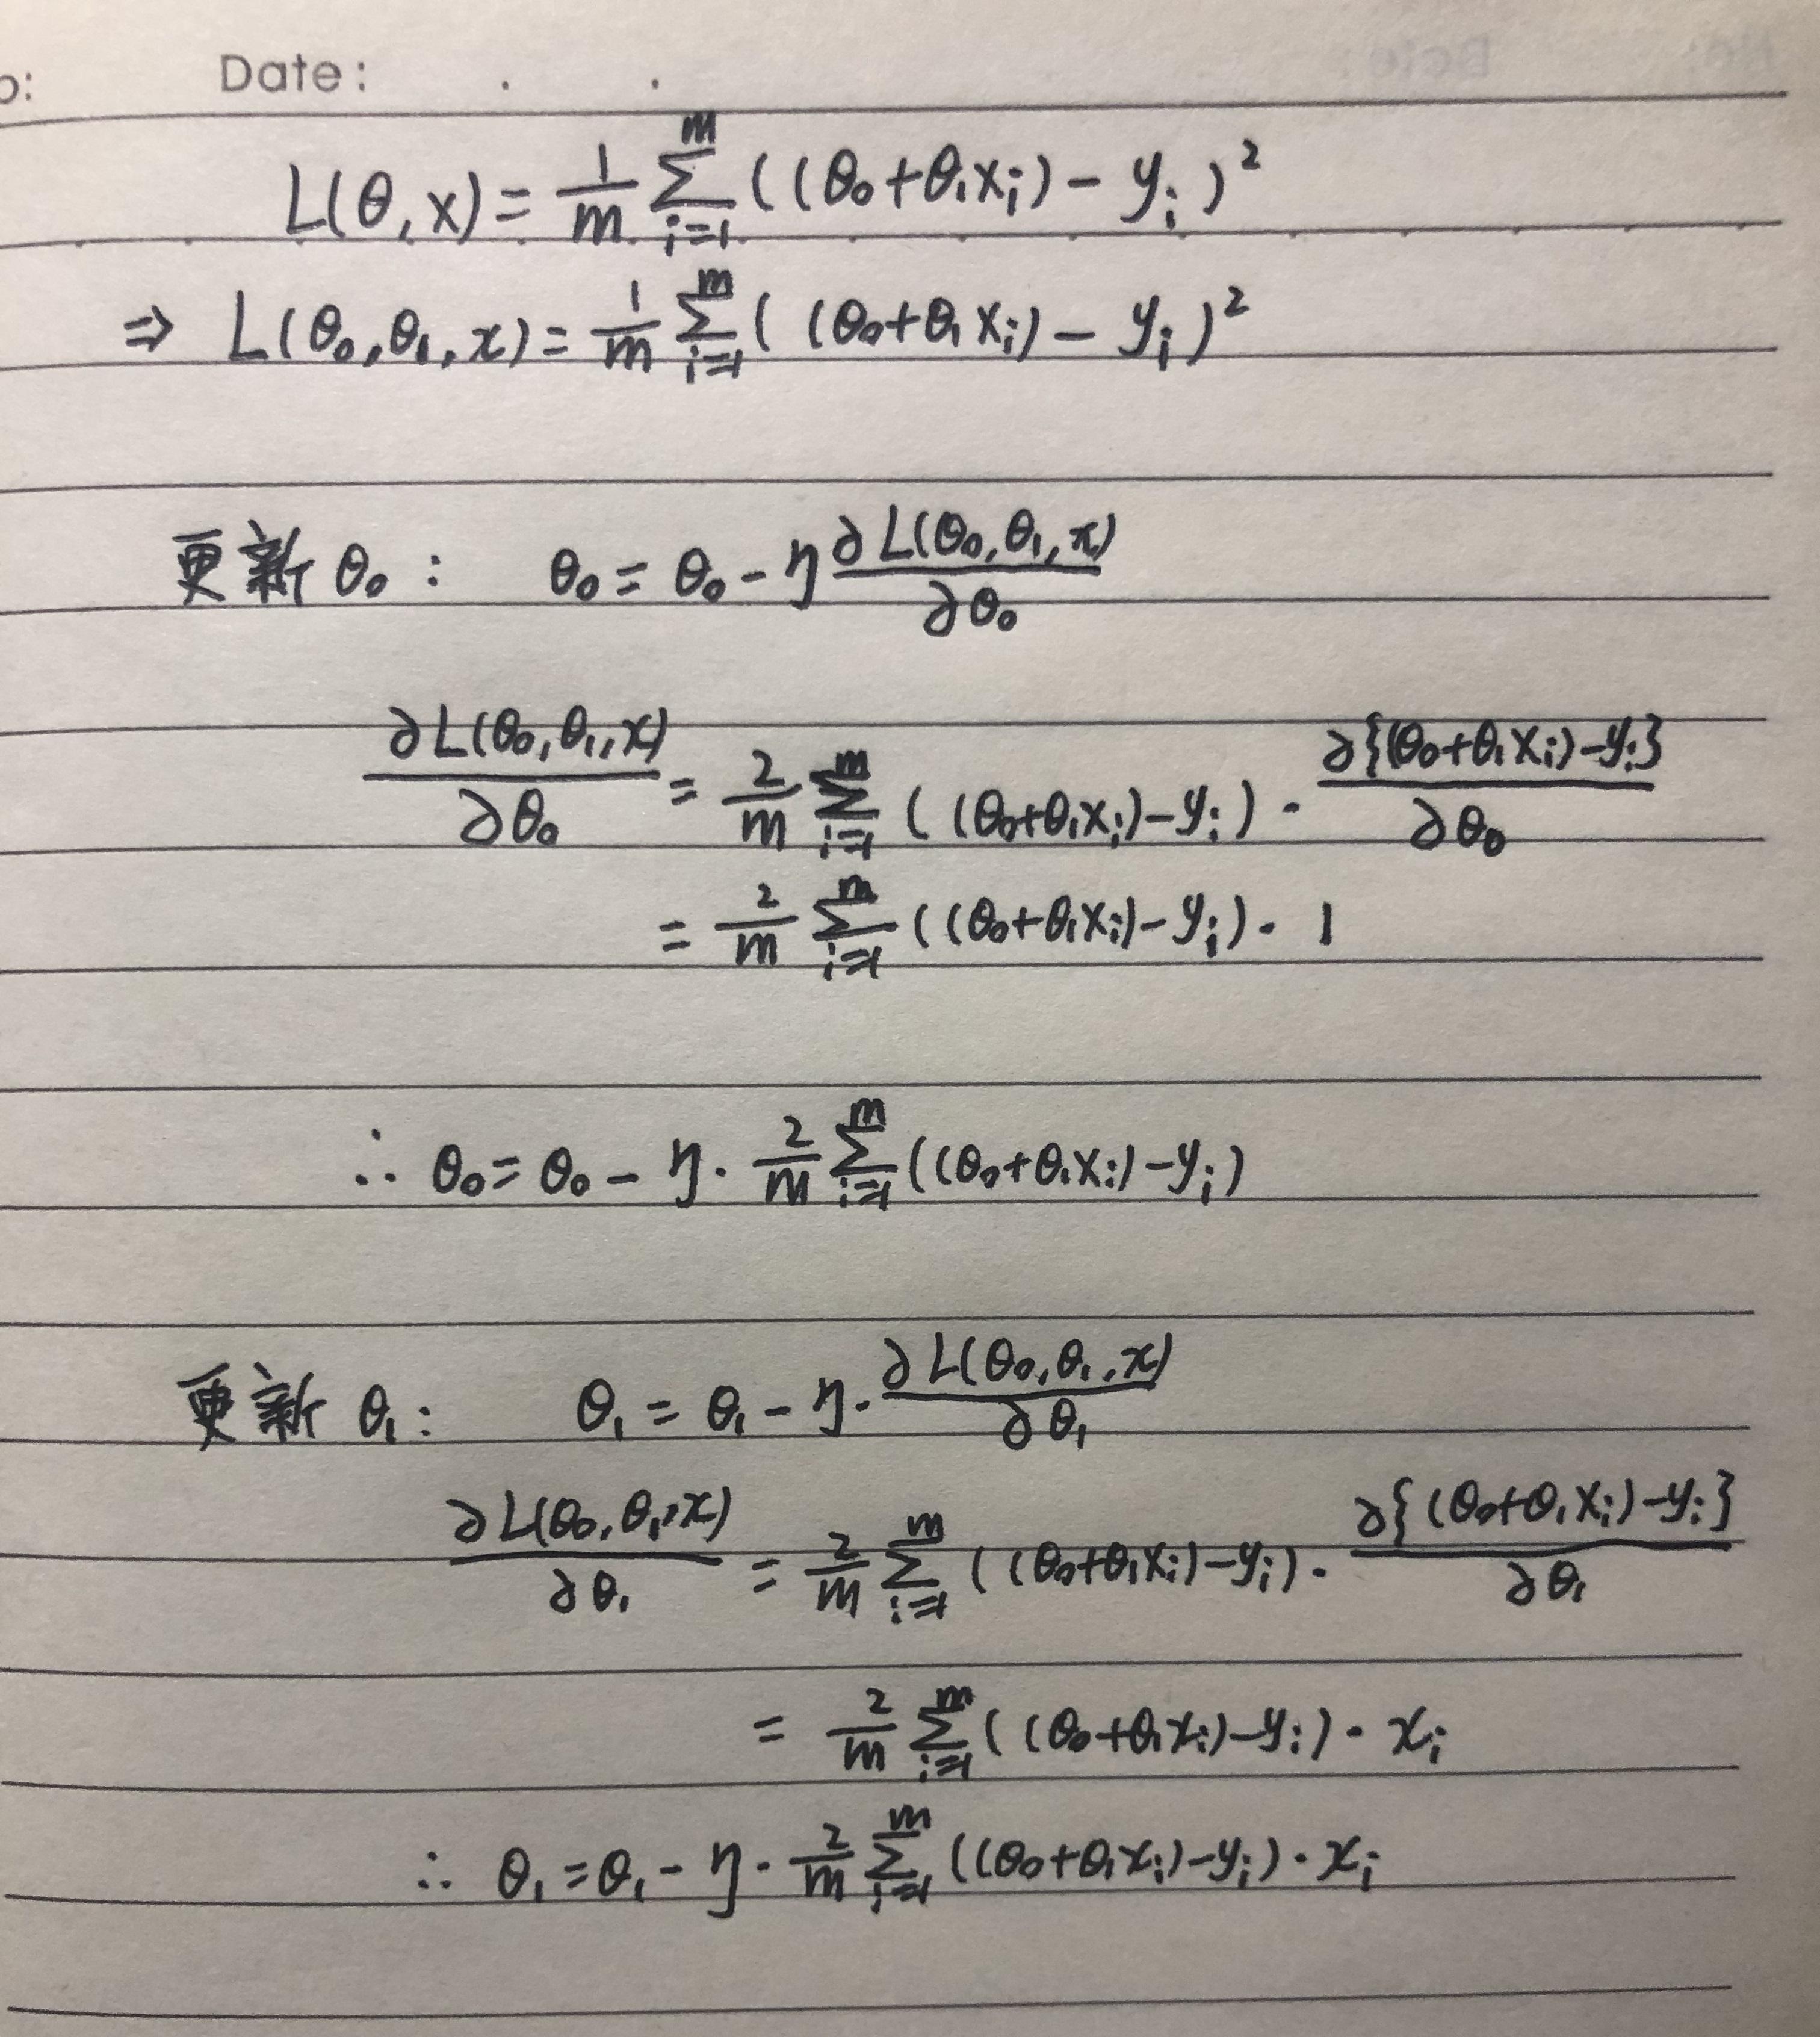 o: Date: . .
L(θ,x) = \frac{1}{m} \sum_{i=1}^{m} ((θ₀+θ₁xᵢ) - yᵢ)²
⇒ L(θ₀,θ₁,x) = \frac{1}{m} \sum_{i=1}^{m} ((θ₀+θ₁xᵢ) - yᵢ)²
更新 θ₀ : θ₀ = θ₀ - η \frac{∂L(θ₀,θ₁,x)}{∂θ₀}
\frac{∂L(θ₀,θ₁,x)}{∂θ₀} = \frac{2}{m} \sum_{i=1}^{m} ((θ₀+θ₁xᵢ)-yᵢ) · \frac{∂{(θ₀+θ₁xᵢ)-yᵢ}}{∂θ₀}
= \frac{2}{m} \sum_{i=1}^{m} ((θ₀+θ₁xᵢ)-yᵢ) · 1
∴ θ₀ = θ₀ - η · \frac{2}{m} \sum_{i=1}^{m} ((θ₀+θ₁xᵢ)-yᵢ)
更新 θ₁ : θ₁ = θ₁ - η · \frac{∂L(θ₀,θ₁,x)}{∂θ₁}
\frac{∂L(θ₀,θ₁,x)}{∂θ₁} = \frac{2}{m} \sum_{i=1}^{m} ((θ₀+θ₁xᵢ)-yᵢ) · \frac{∂{(θ₀+θ₁xᵢ)-yᵢ}}{∂θ₁}
= \frac{2}{m} \sum_{i=1}^{m} ((θ₀+θ₁xᵢ)-yᵢ) · xᵢ
∴ θ₁ = θ₁ - η · \frac{2}{m} \sum_{i=1}^{m} ((θ₀+θ₁xᵢ)-yᵢ) · xᵢ